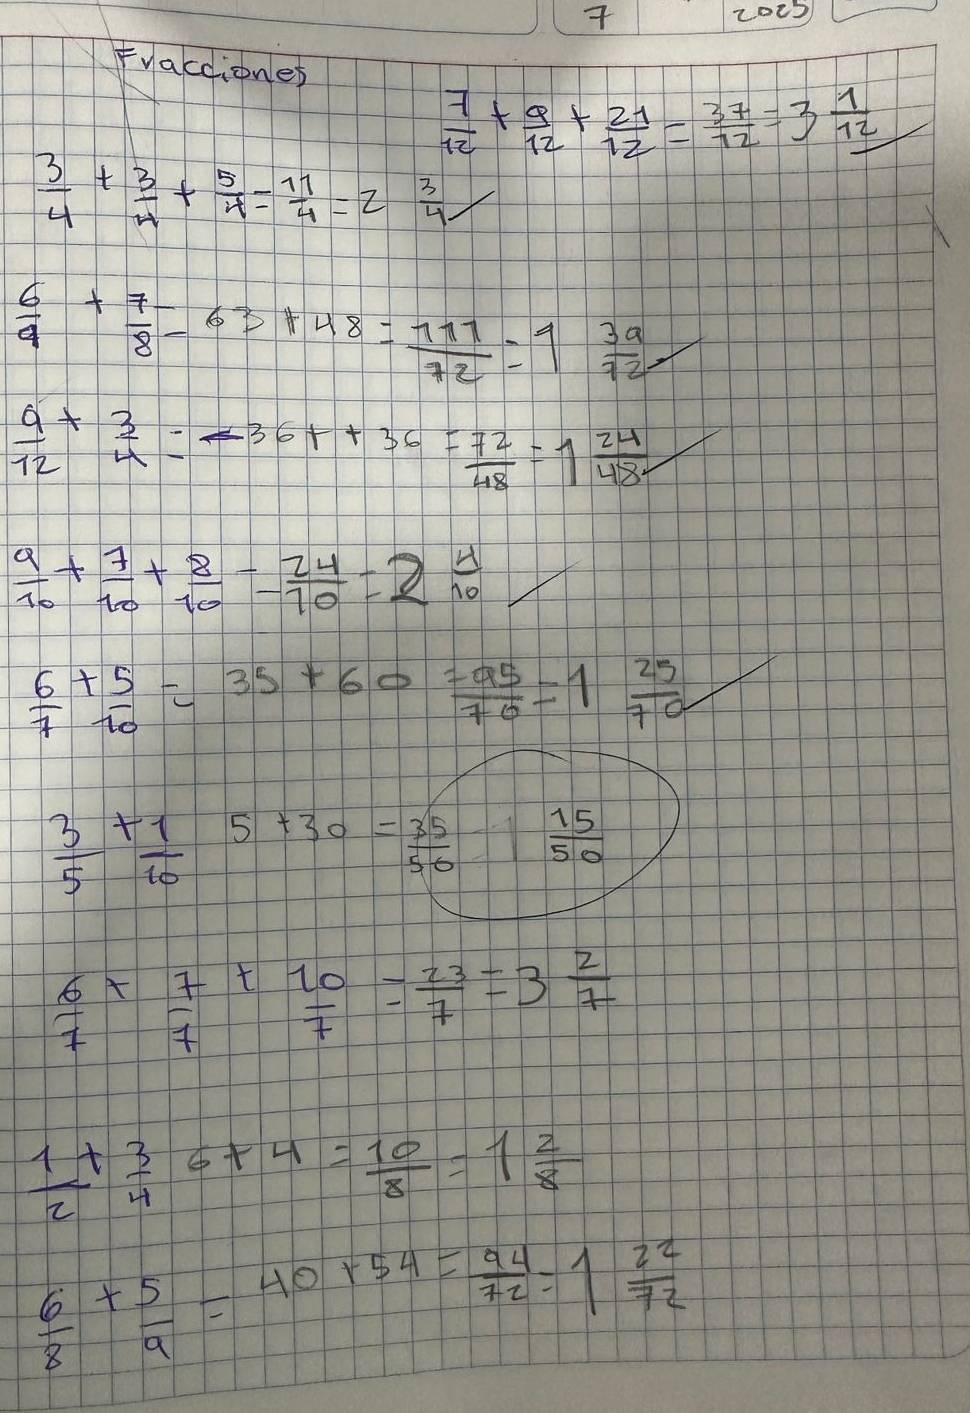 7 2025
Fracciones
7/12 + 9/12 + 21/12 = 37/12 = 3 1/12
3/4 + 3/4 + 5/4 = 11/4 = 2 3/4
6/9 + 7/8 = 63 + 48 = 111/72 = 1 39/72
9/12 + 3/4 = 36 + + 36 = 72/48 = 1 24/48
9/10 + 7/10 + 8/10 = 24/10 = 2 4/10
6/7 + 5/10 = 35 + 60 = 95/70 = 1 25/70
3/5 + 1/10 5 + 30 = 35/50 1 15/50
6/7 + 7/7 + 10/7 = 23/7 = 3 2/7
1/2 + 3/4 6 + 4 = 10/8 = 1 2/8
6/8 + 5/9 = 40 + 54 = 94/72 = 1 22/72